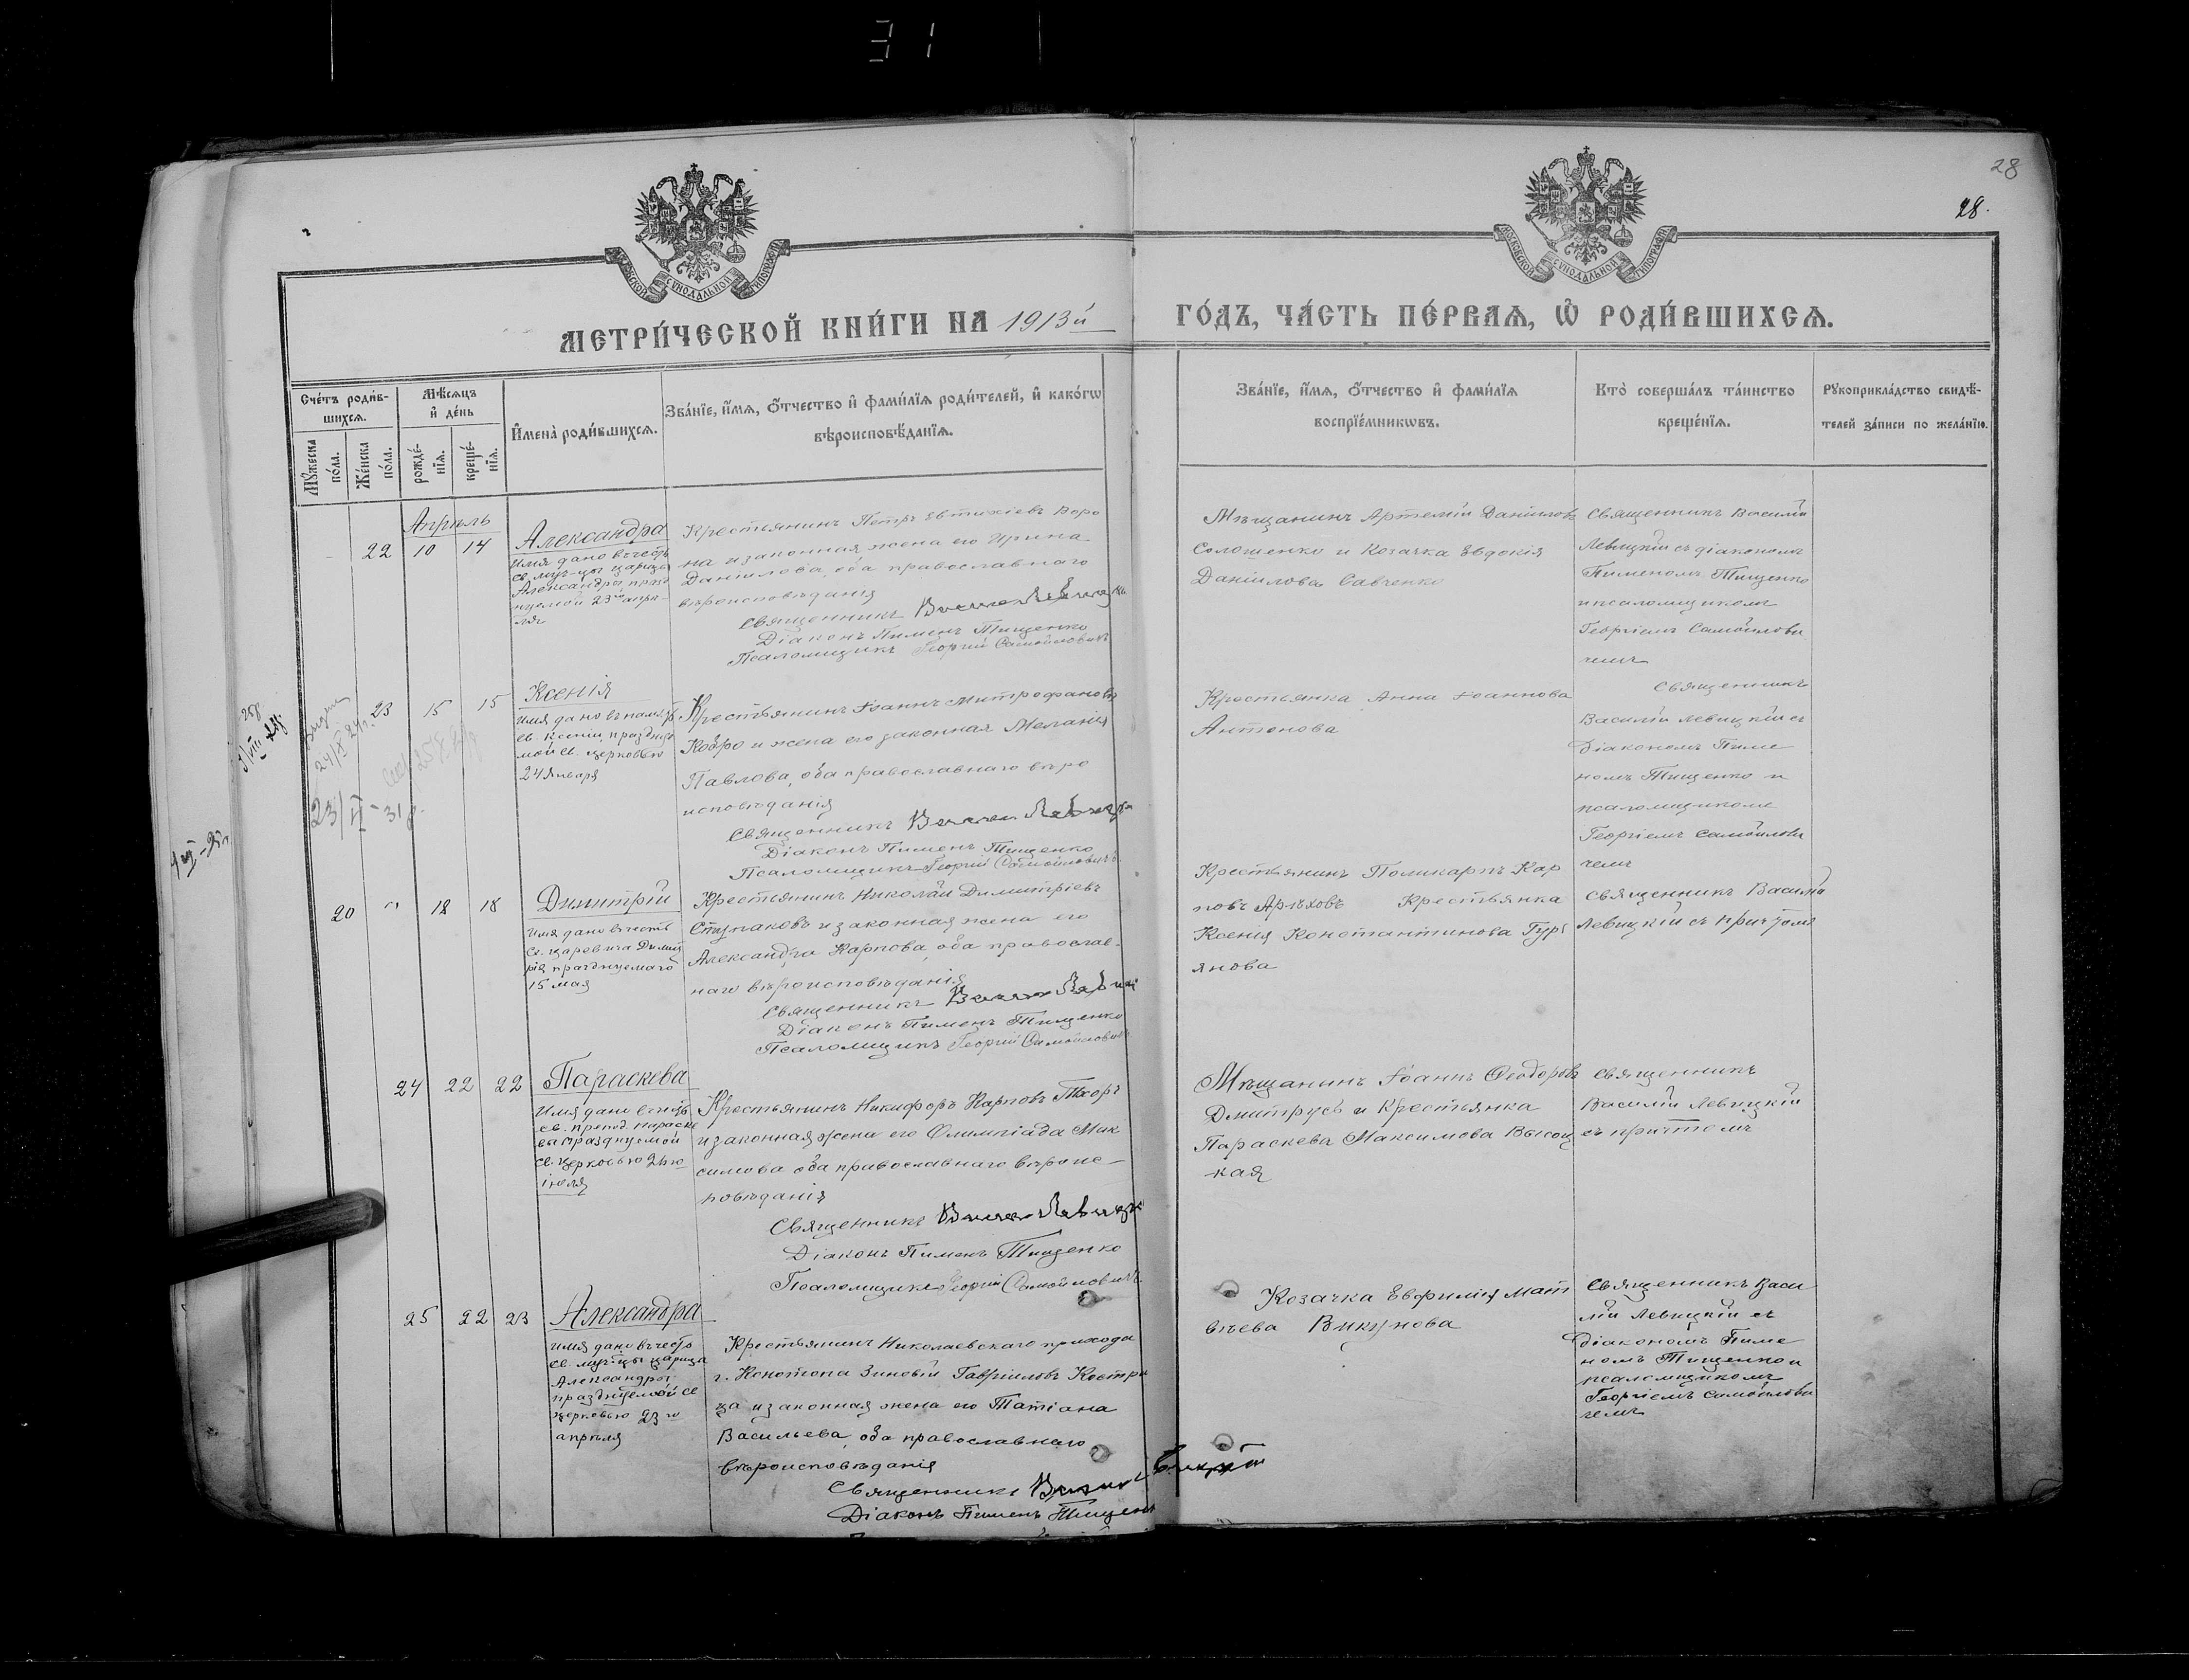 31
28
28.
МОСКОВСКОЙ СѴНОДАЛЬНОЙ ТИПОГРАФІИ
МОСКОВСКОЙ СѴНОДАЛЬНОЙ ТИПОГРАФІИ
МЕТРИ́ЧЕСКОЙ КНИ́ГИ НА 1913й
ГО́ДЪ, ЧА́СТЬ ПЕ́РВАѦ, Ѡ҆ РОДИ́ВШИХСѦ.
Сче́тъ роди́в-
шихсѧ.
Мѹ́жеска по́ла.
Же́нска по́ла.
Мѣ́сѧцъ
и҆ де́нь
рожде́-
нїѧ.
креще́-
нїѧ.
И҆мена̀ роди́вшихсѧ.
Зва́нїе, и҆́мѧ, ѻ҆́тчество и҆ фами́лїѧ роди́телей, и҆ како́гѡ
вѣроисповѣ́данїѧ.
Зва́нїе, и҆́мѧ, ѻ҆́тчество и҆ фами́лїѧ
воспрїе́мникѡвъ.
Кто̀ соверша́лъ та́инство
креще́нїѧ.
Рѹкоприкла́дство свидѣ́-
телей за́писи по жела́нїю.
Апрѣль
22 10 14
Александра
имя дано въ честь
св. муч-цы царицы
Александры празд
нуемой 23го апрѣ-
ля
Крестьянинъ Петръ Евтихіевъ Воро
на и законная жена его Ирина
Даніилова, оба православнаго
вѣроисповѣданія
Священникъ Василій Левицкій
Діаконъ Пименъ Тищенко
Псаломщикъ Георгій Самойловичъ
Мѣщанинъ Артемій Даніиловъ
Солошенко и Козачка Евдокія
Даніилова Савченко
Священникъ Василій
Левицкій съ діакономъ
Пименомъ Тищенко
и псаломщикомъ
Георгіемъ Самойлови
чемъ
23 15 15
Ксенія
имя дано въ память
св. Ксеніи празднуе
мой св. церковью
24 января
Крестьянинъ Іоаннъ Митрофановъ
Кобро и жена его законная Меланія
Павлова, оба православнаго вѣро
исповѣданія
Священникъ Василій Левицкій
Діаконъ Пименъ Тищенко
Псаломщикъ Георгій Самойловичъ
Крестьянка Анна Іоаннова
Антонова
Священникъ
Василій Левицкій съ
діакономъ Пиме
номъ Тищенко и
псаломщикомъ
Георгіемъ Самойлови
чемъ
24/X 24г.
23/VI - 31г.
20 " 18 18
Димитрій
Имя дано въ честь
Св. царевича Димит
рія празднуемаго
15 мая
Крестьянинъ Николай Димитріевъ
Ступаковъ и законная жена его
Александра Карпова, оба православ-
наго вѣроисповѣданія
Священникъ Василій Левицкій
Діаконъ Пименъ Тищенко
Псаломщикъ Георгій Самойловичъ
Крестьянинъ Поликарпъ Кар
повъ Арѣховъ Крестьянка
Ксенія Константинова Гурь
янова
Священникъ Василій
Левицкій съ причтомъ
24 22 22
Параскева
Имя дано въ честь
св. препод. Параске
вы празднуемой
св. церковью 26го
іюля
Крестьянинъ Никифоръ Карповъ Тхоръ
и законная жена его Олимпіада Мак
симова оба православнаго вѣроис-
повѣданія
Священникъ Василій Левицкій
Діаконъ Пименъ Тищенко
Псаломщикъ Георгій Самойловичъ
Мѣщанинъ Іоаннъ Ѳеодоровъ
Дмитрусь и Крестьянка
Параскева Максимова Высоц
кая
Священникъ
Василій Левицкій
съ причтомъ
25 22 23
Александра
имя дано въ честь
св. муч-цы царицы
Александры
празднуемой св
церковью 23го
апрѣля
Крестьянинъ Николаевскаго прихода
г. Конотопа Зиновій Гавріиловъ Костри
ца и законная жена его Татіана
Васильева, оба православнаго
вѣроисповѣданія
Священникъ Василій Левицкій
Діаконъ Пименъ Тищенко
Козачка Евфимія Мат
вѣева Викунова
Священникъ Васи
лій Левицкій съ
діакономъ Пиме
номъ Тищенко и
псаломщикомъ
Георгіемъ Самойлови
чемъ